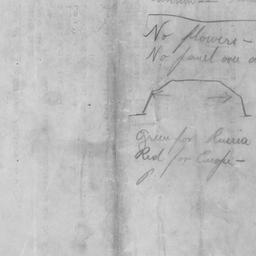 No flowers -
No panel over
Green for Russia
Red for Eagle -
P.